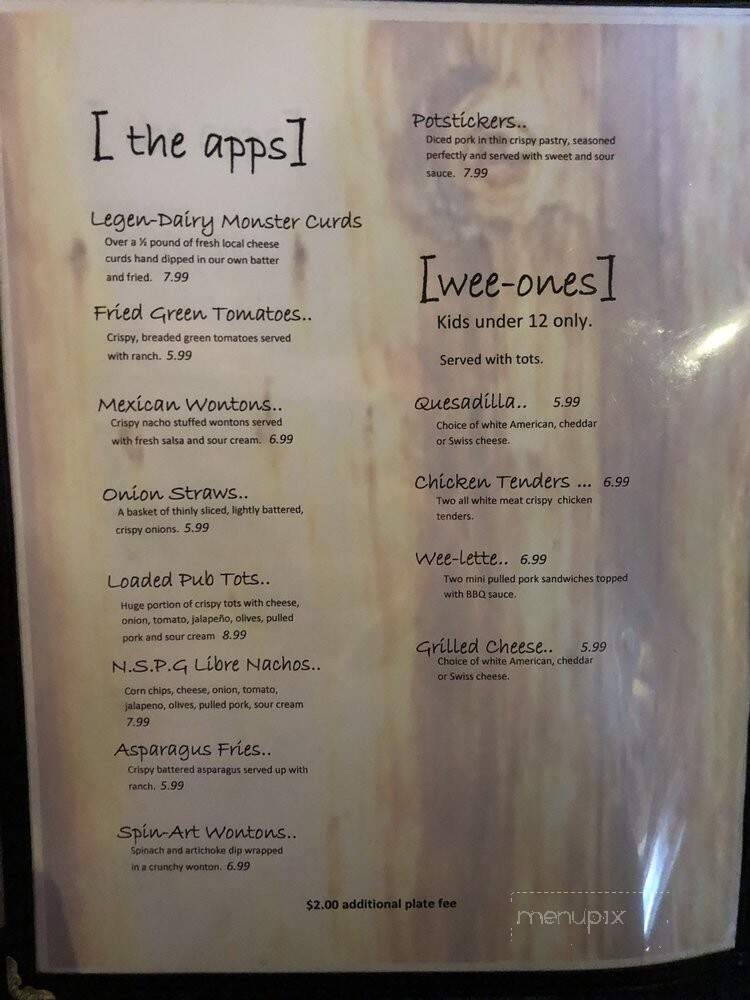 [ the apps]
Legen-Dairy Monster Curds
Over a ½ pound of fresh local cheese
curds hand dipped in our own batter
and fried. 7.99
Fried Green Tomatoes..
Crispy, breaded green tomatoes served
with ranch. 5.99
Mexican Wontons..
Crispy nacho stuffed wontons served
with fresh salsa and sour cream. 6.99
Onion Straws..
A basket of thinly sliced, lightly battered,
crispy onions. 5.99
Loaded Pub Tots..
Huge portion of crispy tots with cheese,
onion, tomato, jalapeño, olives, pulled
pork and sour cream 8.99
N.S.P.G Libre Nachos..
Corn chips, cheese, onion, tomato,
jalapeno, olives, pulled pork, sour cream
7.99
Asparagus Fries..
Crispy battered asparagus served up with
ranch. 5.99
Spin-Art Wontons..
Spinach and artichoke dip wrapped
in a crunchy wonton. 6.99
Potstickers..
Diced pork in thin crispy pastry, seasoned
perfectly and served with sweet and sour
sauce. 7.99
[wee-ones]
Kids under 12 only.
Served with tots.
Quesadilla.. 5.99
Choice of white American, cheddar
or Swiss cheese.
Chicken Tenders ... 6.99
Two all white meat crispy chicken
tenders.
Wee-lette.. 6.99
Two mini pulled pork sandwiches topped
with BBQ sauce.
Grilled Cheese.. 5.99
Choice of white American, cheddar
or Swiss cheese.
$2.00 additional plate fee
menupix